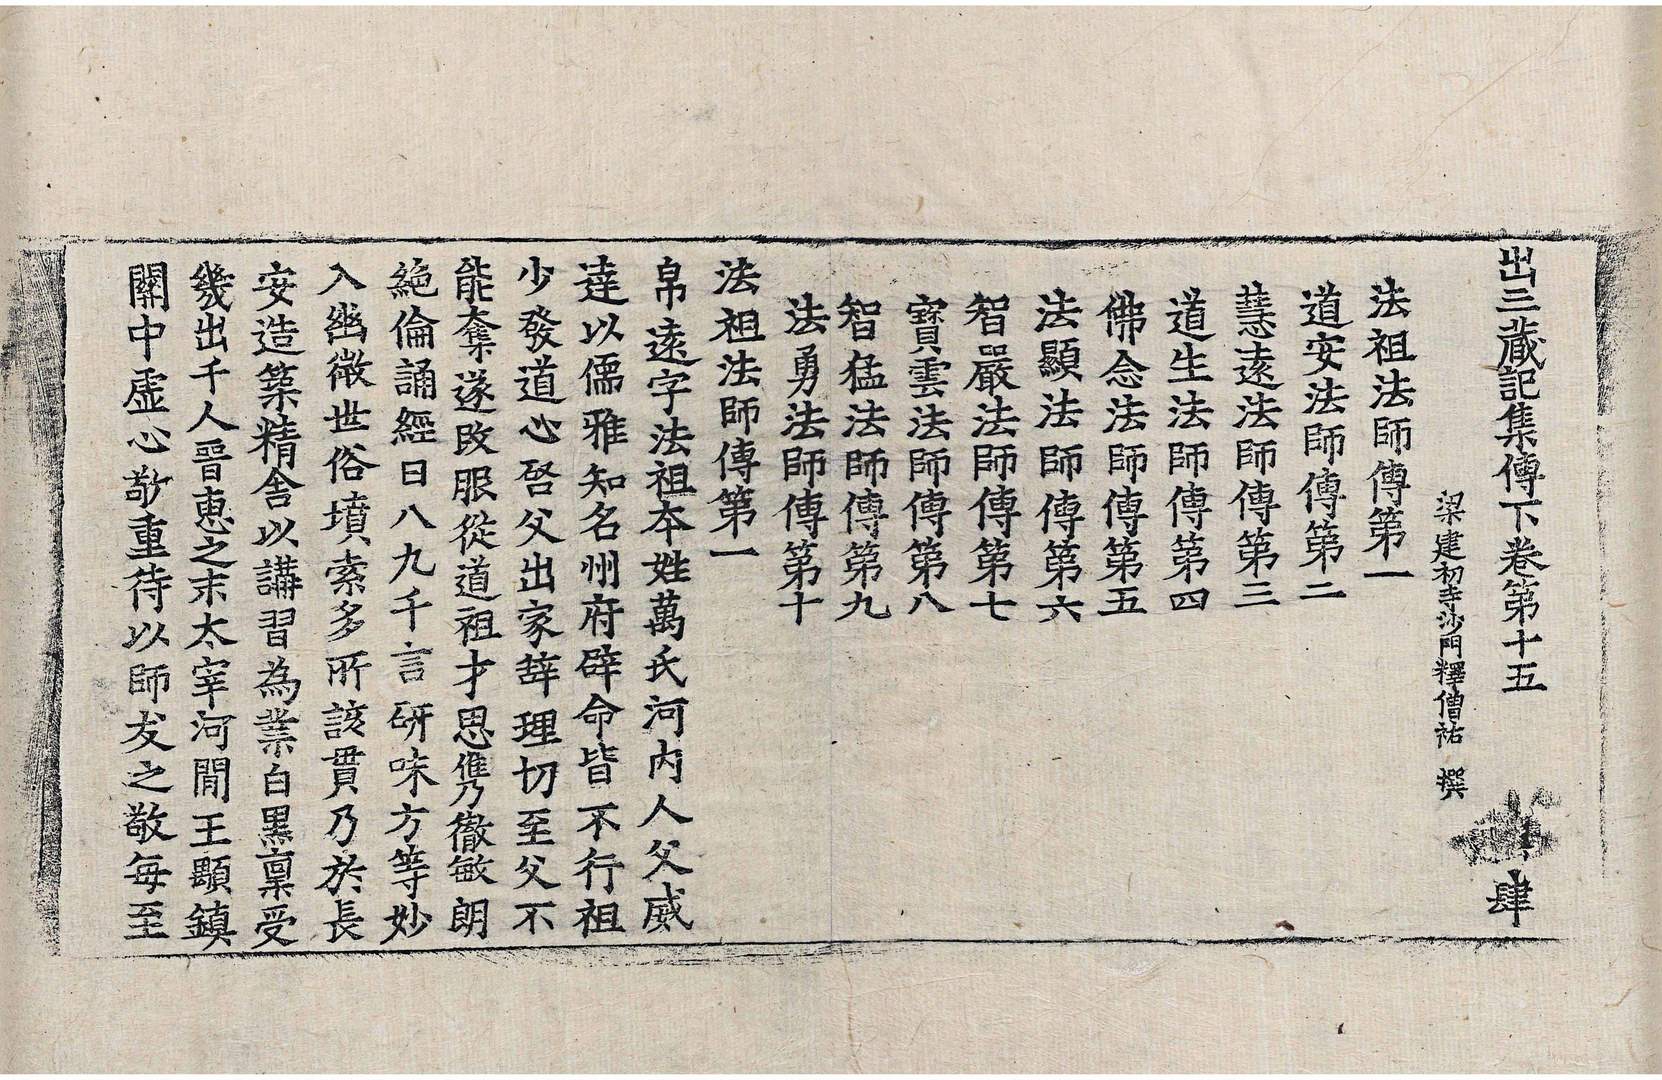 出三藏記集傳下卷第十五 肆
梁建初寺沙門釋僧祐 撰
法祖法師傳第一
道安法師傳第二
慧遠法師傳第三
道生法師傳第四
佛念法師傳第五
法顯法師傳第六
智嚴法師傳第七
寶雲法師傳第八
智猛法師傳第九
法勇法師傳第十
法祖法師傳第一
帛遠字法祖本姓萬氏河內人父威
達以儒雅知名州府辟命皆不行祖
少發道心啓父出家辭理切至父不
能奪遂改服從道祖才思儁乃徹敏朗
絕倫誦經日八九千言研味方等妙
入幽微世俗墳索多所該貫乃於長
安造築精舍以講習為業白黑稟受
幾出千人晉惠之末太宰河閒王顒鎮
關中虛心敬重待以師友之敬每至